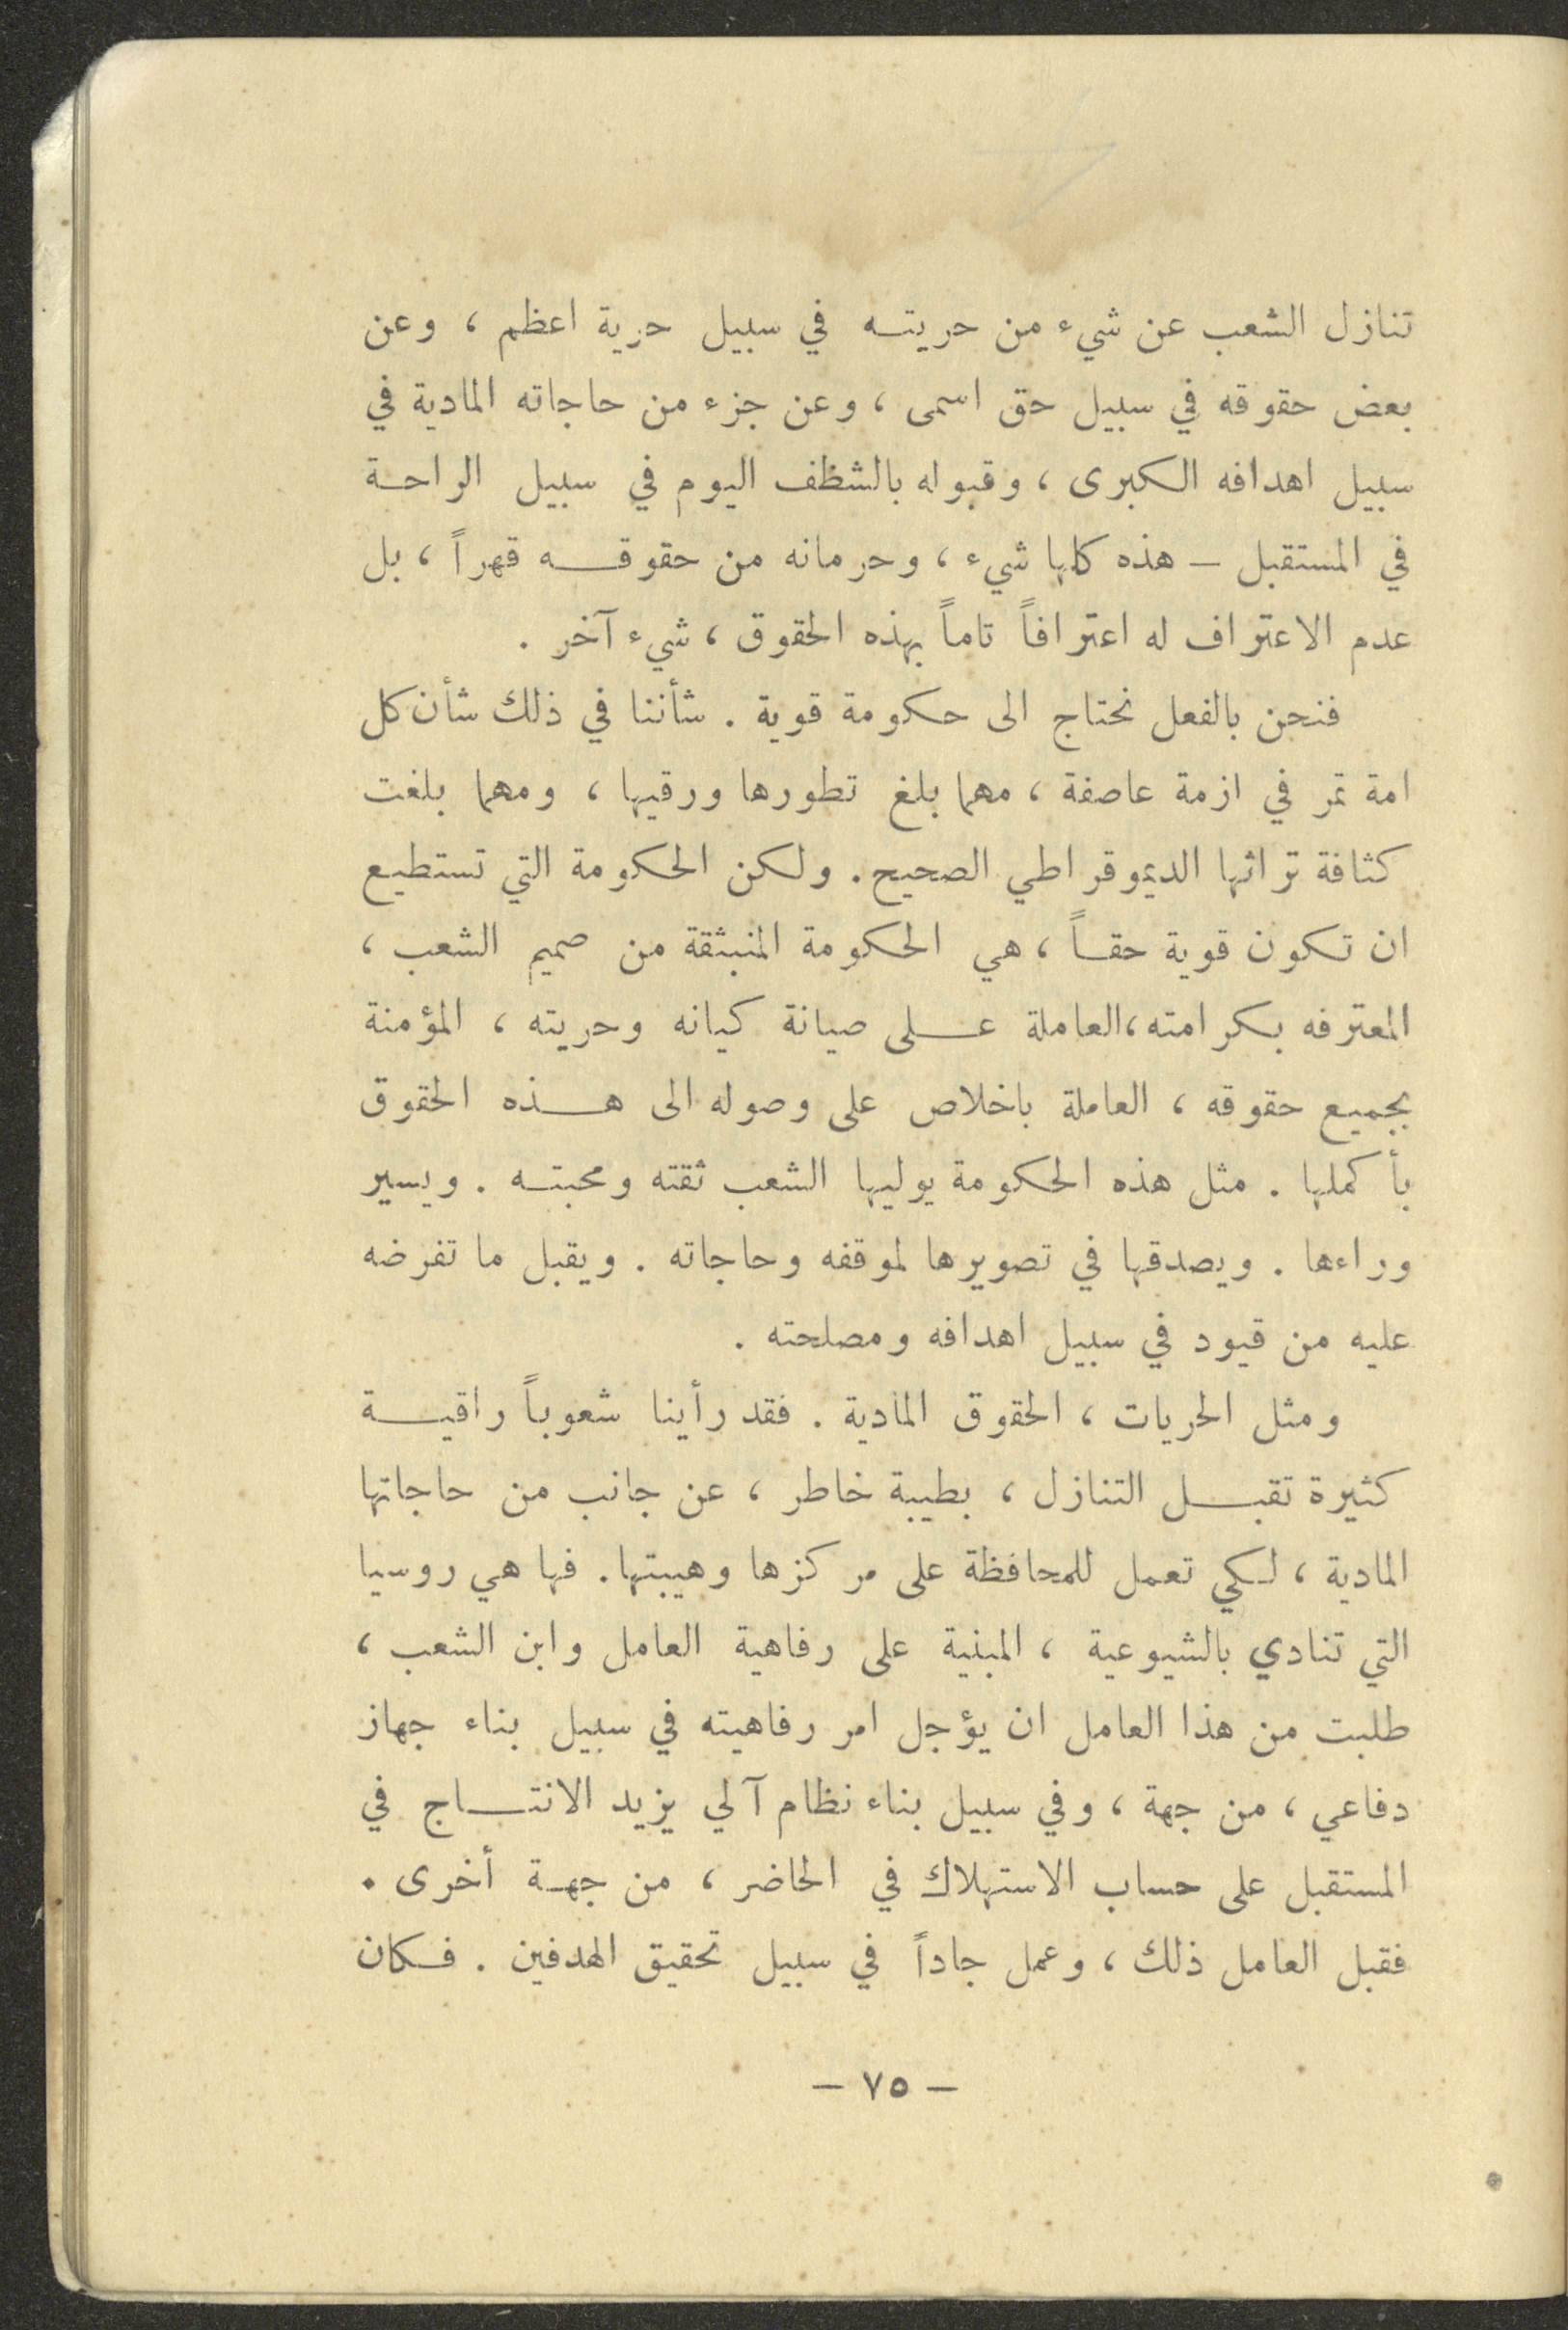 تنازل الشعب عن شيء من حريتـه في سبيل حرية اعظم ، وعن
بعض حقوقه في سبيل حق اسمى ، وعن جزء من حاجاته المادية في
سبيل اهدافه الكبرى ، وقبوله بالشظف اليوم في سبيل الراحـة
في المستقبل – هذه كلها شيء ، وحرمانه من حقوقـه قهراً ، بل
عدم الاعتراف له اعترافاً تاماً بهذه الحقوق ، شيء آخر .
فنحن بالفعل نحتاج الى حكومة قوية . شأننا في ذلك شأن كل
امة تمر في ازمة عاصفة ، مهما بلغ تطورها ورقيها ، ومهما بلغت
كثافة تراثها الديموقراطي الصحيح . ولكن الحكومة التي تستطيع
ان تكون قوية حقـاً ، هي الحكومة المنبثقة من صميم الشعب ،
المعترفه بكرامته ، العاملة عـلى صيانة كيانه وحريته ، المؤمنة
بجميع حقوقه ، العاملة باخلاص على وصوله الى هـذه الحقوق
بأكملها . مثل هذه الحكومة يوليها الشعب ثقته ومحبتـه . ويسير
وراءها . ويصدقها في تصويرها لموقفه وحاجاته . ويقبل ما تفرضه
عليه من قيود في سبيل اهدافه ومصلحته .
ومثل الحريات ، الحقوق المادية . فقد رأينا شعوباً راقيـة
كثيرة تقبـل التنازل ، بطيبة خاطر ، عن جانب من حاجاتها
المادية ، لكي تعمل للمحافظة على مركزها وهيبتها . فها هي روسيا
التي تنادي بالشيوعية ، المبنية على رفاهية العامل وابن الشعب ،
طلبت من هذا العامل ان يؤجل امر رفاهيته في سبيل بناء جهاز
دفاعي ، من جهة ، وفي سبيل بناء نظام آلي يزيد الانتـاج في
المستقبل على حساب الاستهلاك في الحاضر ، من جهـة أخرى .
فقبل العامل ذلك ، وعمل جاداً في سبيل تحقيق الهدفين . فكان
– ٧٥ –